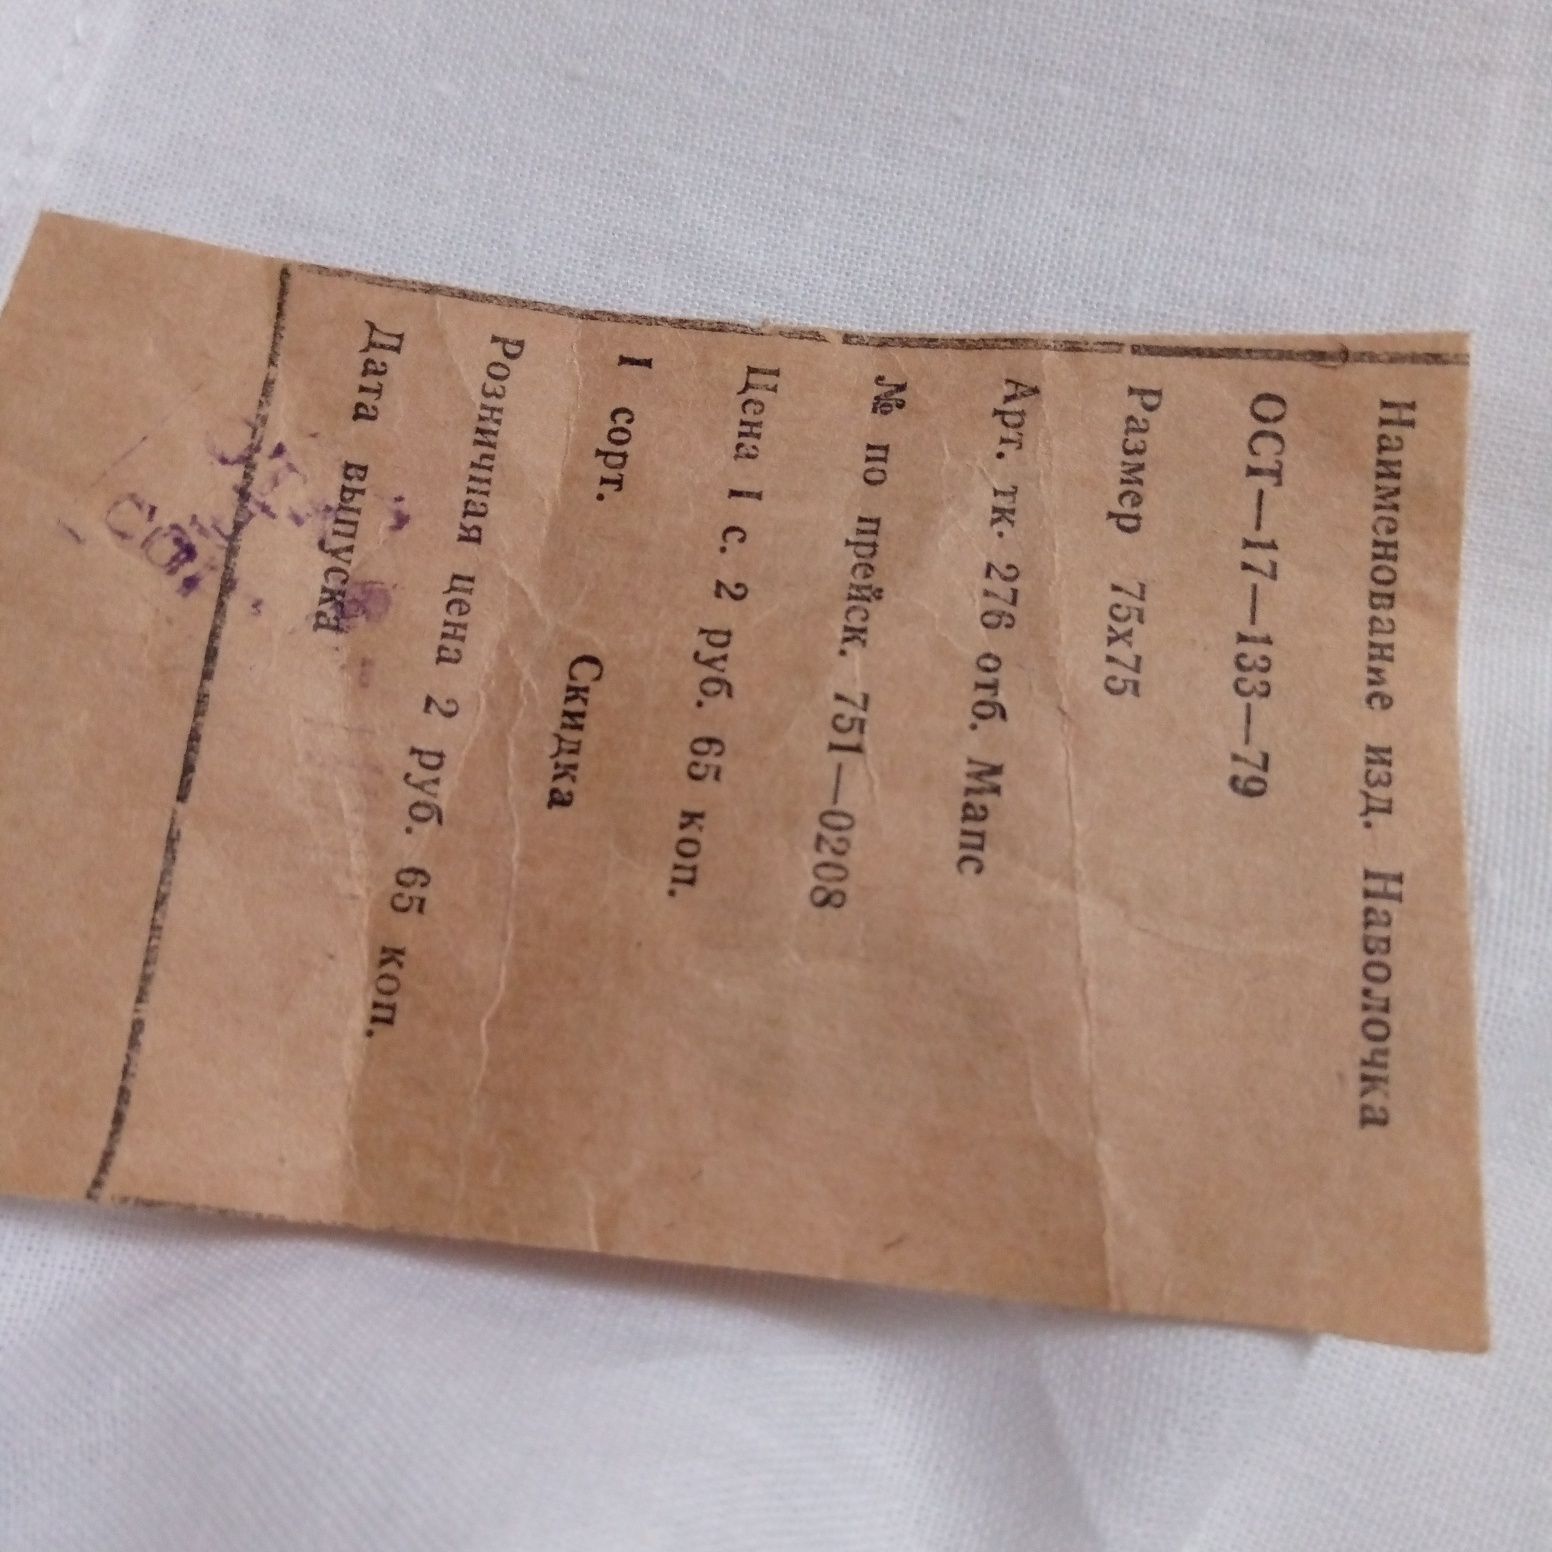 Наименование изд. Наволочка
ОСТ—17—133—79
Размер 75х75
Арт. тк. 276 отб. Мапс
№ по прейск. 751—0208
Цена I с. 2 руб. 65 коп.
I сорт. Скидка
Розничная цена 2 руб. 65 коп.
Дата выпуска